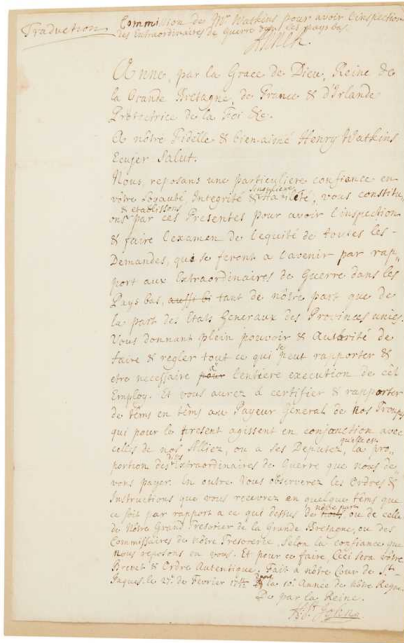 Traduction
Commission de Mr Watkins pour avoir l'inspection
des Extraordinaires de Guerre dans les pays bas.
Anne, par la Grace de Dieu, Reine de
la Grande Bretagne, de France & d'Irlande
Protectrice de la Foi &c.
A nôtre Fidelle & bien-aimé Henry Watkins
Ecuyer Salut.
Nous, reposans une particuliere confiance en
vôtre Loyauté, Integrité & habileté, vous constitu
& etablissons
ons par ces Presentes pour avoir l'inspection
& faire l'examen de l'equité de toutes les
Demandes, qui se feront à l'avenir par rap
port aux Extraordinaires de Guerre dans les
Pays bas, tant de nôtre part que de
la part des Etats Generaux des Provinces unies.
Vous donnant plein pouvoir & Autorité de
faire & regler tout ce qui peut rapporter &
etre necessaire l'entiere execution de cet
Employ. Et vous aurez à certifier & rapporter
de têms en têms au Payeur General de nos
qui pour le present agissent en conjonction avec
celles de nos Alliez, ou a ses Deputez, la pro
portion des Extraordinaires de Guerre que nous de
vons payer. En outre vous observerez les Ordres &
Instructions que vous recevrez en quelque têms que
ce soit par rapport a ce qui dessus de nôtre part, ou de celle
de Nôtre Grand Tresorier de la Grande Bretagne, ou des
Commissaires de nôtre Tresorerie. Selon la confiance que
nous reposons en vous. Et pour ce faire Ceci sera vôtre
Brevet & Ordre Autentique. Fait à nôtre Cour de St
Jaques, le 27e de Fevrier & la 10e Année de Nôtre Regne
De par la Reine.